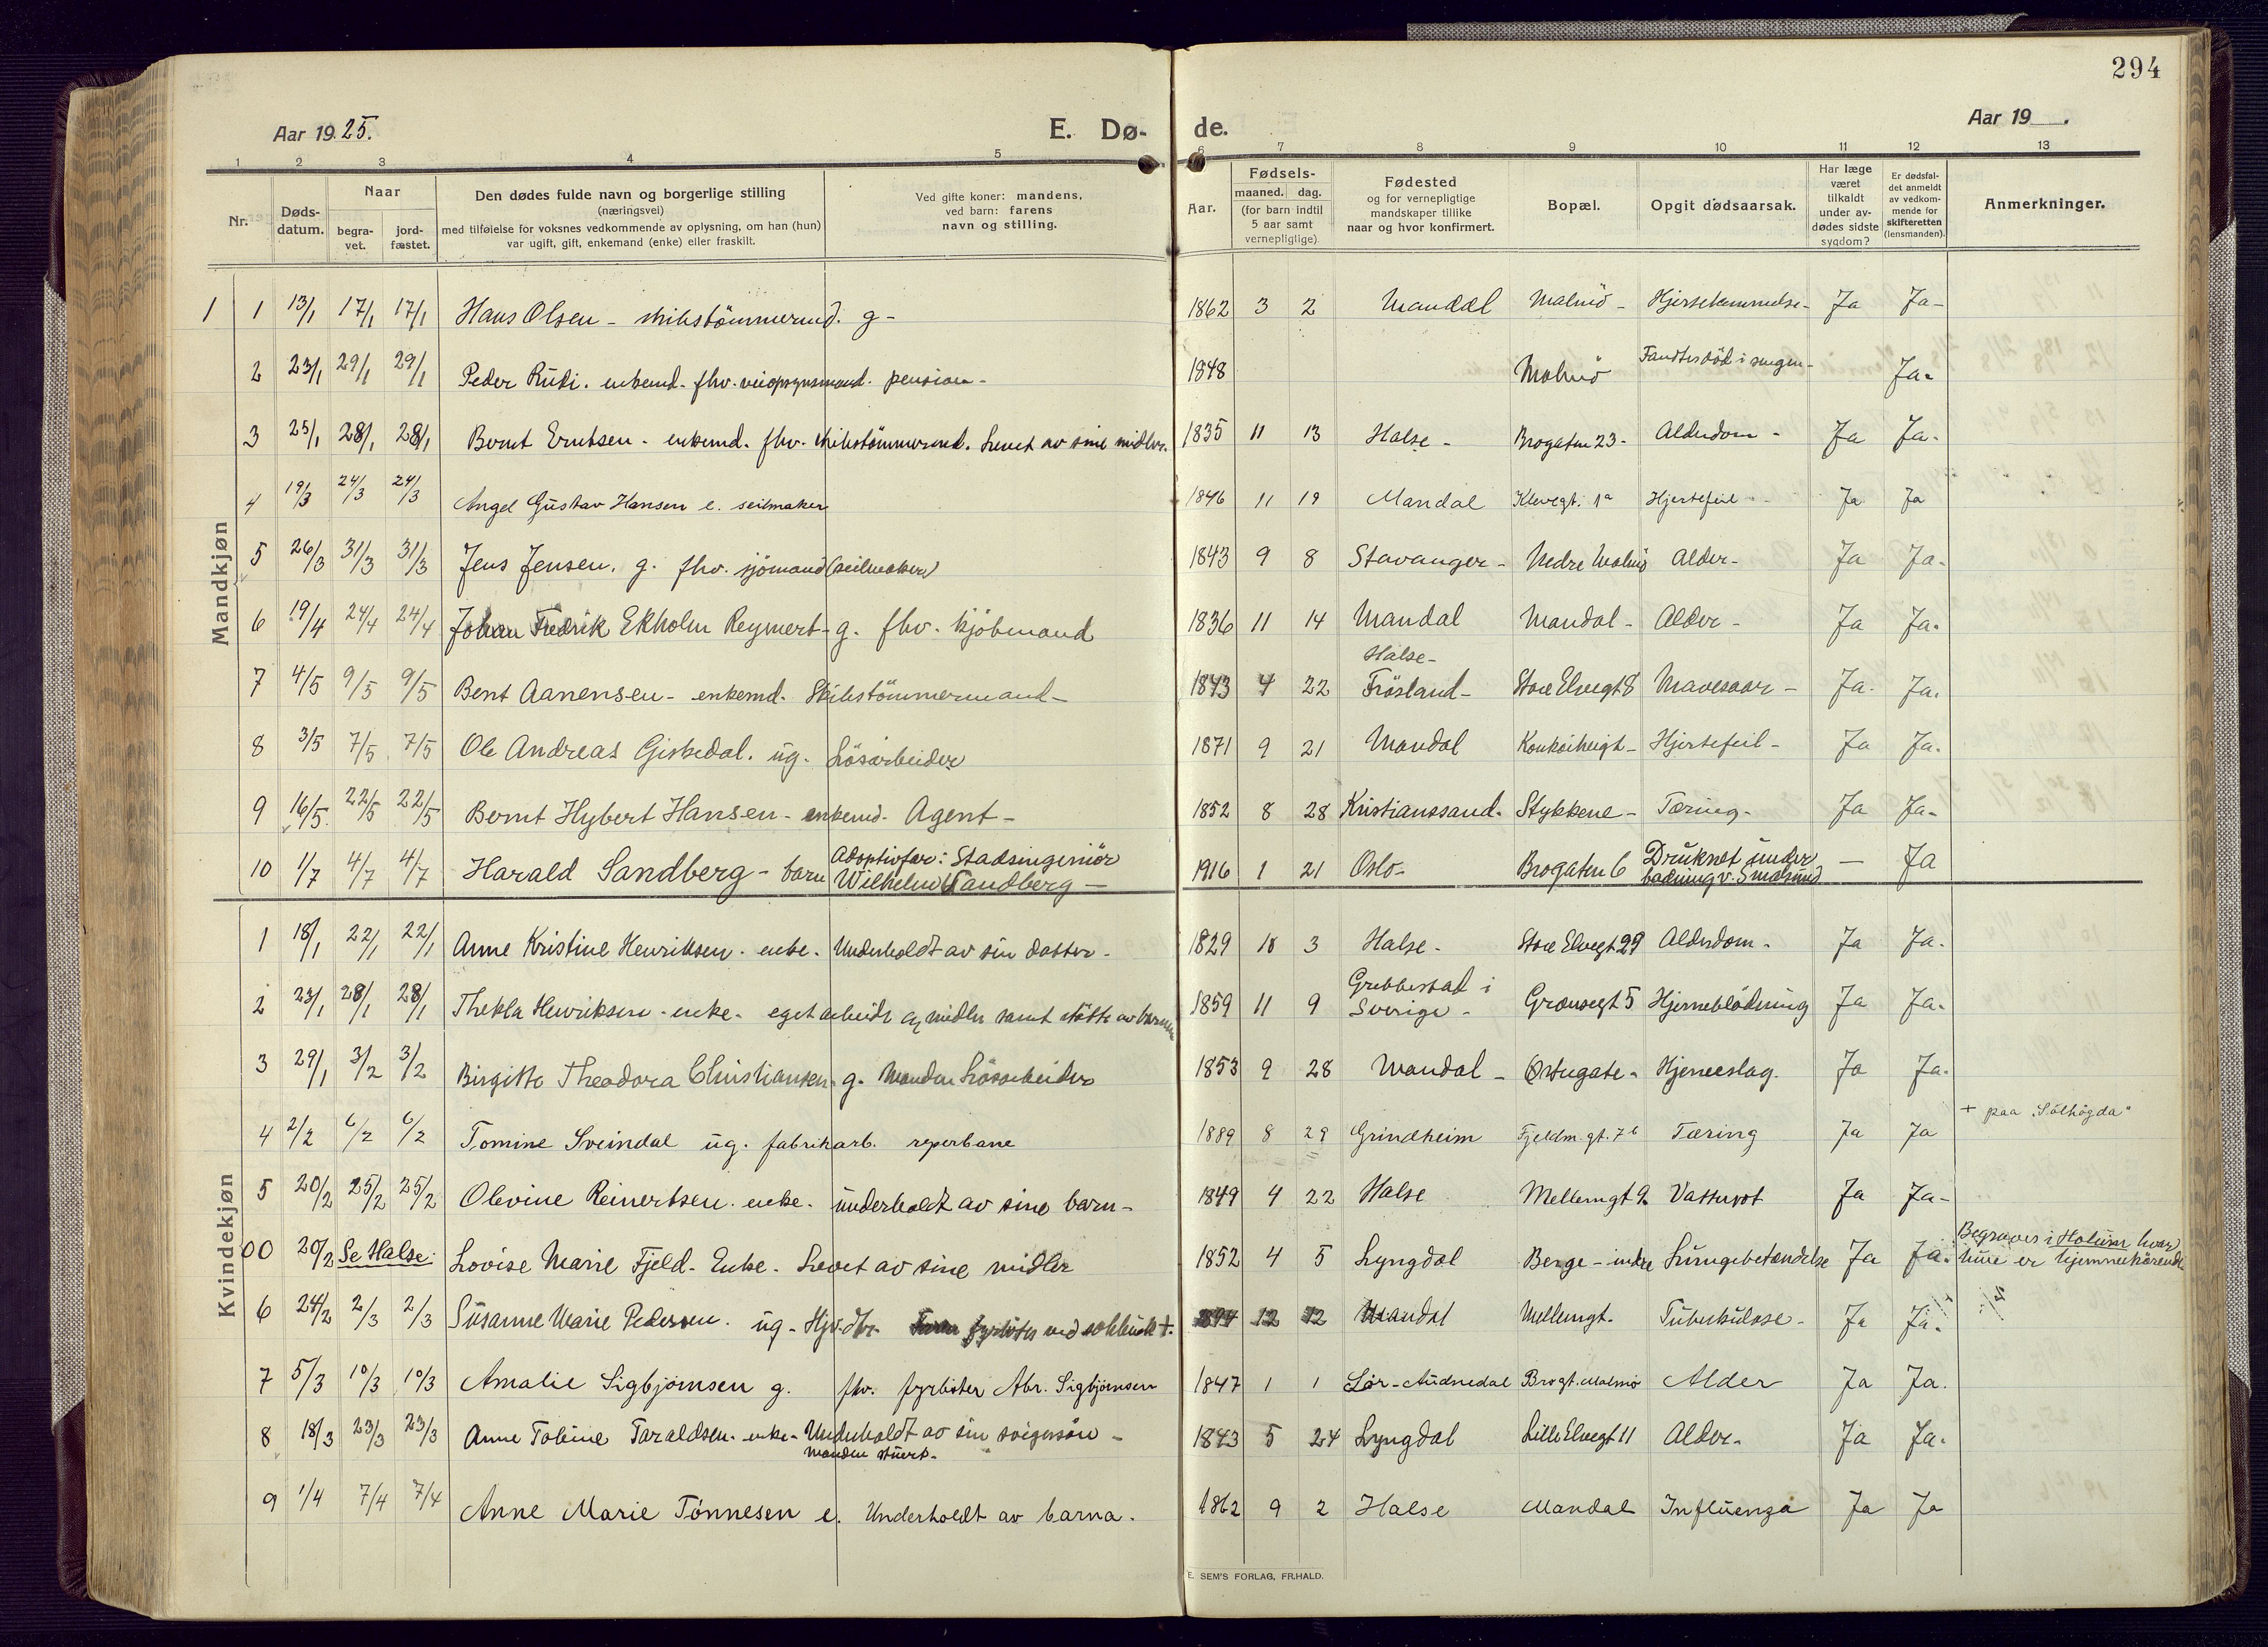 294
Aar 1925.
E. Dø-
de.
Aar 19 .
1 2 3 4 5 6 7 8 9 10 11 12 13
Nr.
Døds-
datum.
Naar
begra-
vet.
jord-
fæstet.
Den dødes fulde navn og borgerlige stilling
(næringsvei)
med tilføielse for voksnes vedkommende av oplysning, om han (hun)
var ugift, gift, enkemand (enke) eller fraskilt.
Ved gifte koner: mandens,
ved barn: farens
navn og stilling.
Aar.
Fødsels-
maaned. dag.
(for barn indtil
5 aar samt
vernepligtige).
Fødested
og for vernepligtige
mandskaper tillike
naar og hvor konfirmert.
Bopæl.
Opgit dødsaarsak.
Har læge
været
tilkaldt
under av-
dødes sidste
sygdom?
Er dødsfal-
det anmeldt
av vedkom-
mende for
skifteretten
(lensmanden).
Anmerkninger.
Mandkjøn
1 1 13/1 17/1 17/1 Hans Olsen - skibstömmermd. g - 1862 3 2 Mandal Malmö - Hjertelammelse - Ja Ja -
2 23/1 29/1 29/1 Peder Rudi. enkemd. fhv. veiopsynsmand. pension - 1848 Malmö Fandtes död i sengen - Ja -
3 25/1 28/1 28/1 Bernt Erntsen - enkemd. fhv. skibstömmermd. Levet av sine midler. 1835 11 13 Halse - Brogaten 23 - Alderdom - Ja Ja -
4 19/3 24/3 24/3 Angel Gustav Hansen e. seilmaker 1846 11 19 Mandal Klevegt. 1a Hjertefeil - Ja Ja
5 26/3 31/3 31/3 Jens Jensen. g. fhv. sjömand (seilmaker) 1843 9 8 Stavanger - Nedre Malmö Alder - Ja Ja -
6 19/4 24/4 24/4 Johan Fredrik Ekholm Reymert - g. fhv. kjöbmand 1836 11 14 Mandal Mandal - Alder - Ja Ja.
7 4/5 9/5 9/5 Bent Aanensen - enkemd. Skibstömmermand - 1843 4 22 Halse -
Frösland - Store Elvegt 8 Mavesaar - Ja. Ja.
8 3/5 7/5 7/5 Ole Andreas Giskedal. ug. Lösarbeider 1871 9 21 Mandal Hjertefeil - Ja Ja.
9 16/5 22/5 22/5 Bernt Hybert Hansen - enkemd. Agent - 1852 8 28 Kristianssand. Stykkene - Tæring - Ja Ja -
10 1/7 4/7 4/7 Harald Sandberg - barn Adoptivfar: Stadsingeniör
Wilhelm Sandberg - 1916 1 21 Oslo - Brogaten 6 Druknet under
badning v. — Ja
Kvindekjøn
1 18/1 22/1 22/1 Anne Kristine Henriksen. enke. Underholdt av sin datter - 1829 3 Halse - Store Elvegt 29 Alderdom - Ja Ja.
2 23/1 28/1 28/1 Thekla Henriksen - enke - eget arbeide og midler samt stötte av barnene 1859 11 9 Grebbestad i
Sverige - Grænsegt 5 Hjerneblödning Ja Ja.
3 29/1 3/2 3/2 Birgitte Theodora Christiansen - g. Manden Lösarbeider 1853 9 28 Mandal - Ostugate - Hjerneslag. Ja Ja.
4 2/2 6/2 6/2 Tomine Sveindal ug. fabrikarb. reperbane 1889 8 29 Grindheim Fjeldm. gt. 7b Tæring Ja Ja + paa "Sölhögda"
5 20/2 25/2 25/2 Olevine Reinertsen. enke. underholdt av sine barn - 1849 4 22 Halse Mellemgt 9 Vattersot Ja Ja -
00 20/2 Se Halse: Lovise Marie Fjeld - Enke - Levet av sine midler 1852 4 5 Lyngdal Berge - indre Lungebetændelse Ja Ja. Begraves i Holum hvor
hun er hjemmehörende
6 24/2 2/3 2/3 Susanne Marie Pedersen. ug - Hjv. dtr. fyrböter ved 12 12 Mandal Mellemgt. Tuberkulose - Ja Ja.
7 5/3 10/3 10/3 Amalie Sigbjörnsen g. fhv. fyrböter Abr. Sigbjörnsen 1847 1 1 Sör-Audnedal Brogt. Malmö Alder Ja Ja.
8 18/3 23/3 23/3 Anne Tobine Taraldsen - enke - Underholdt av sin svigersön -
Manden stuert. 1843 5 24 Lyngdal Lille Elvegt 11 Alder - Ja Ja.
9 1/4 7/4 7/4 Anne Marie Tönnesen e. Underholdt av barna. 1862 9 2 Halse Mandal Influenza Ja Ja
E. SEM'S FORLAG, FR.HALD.